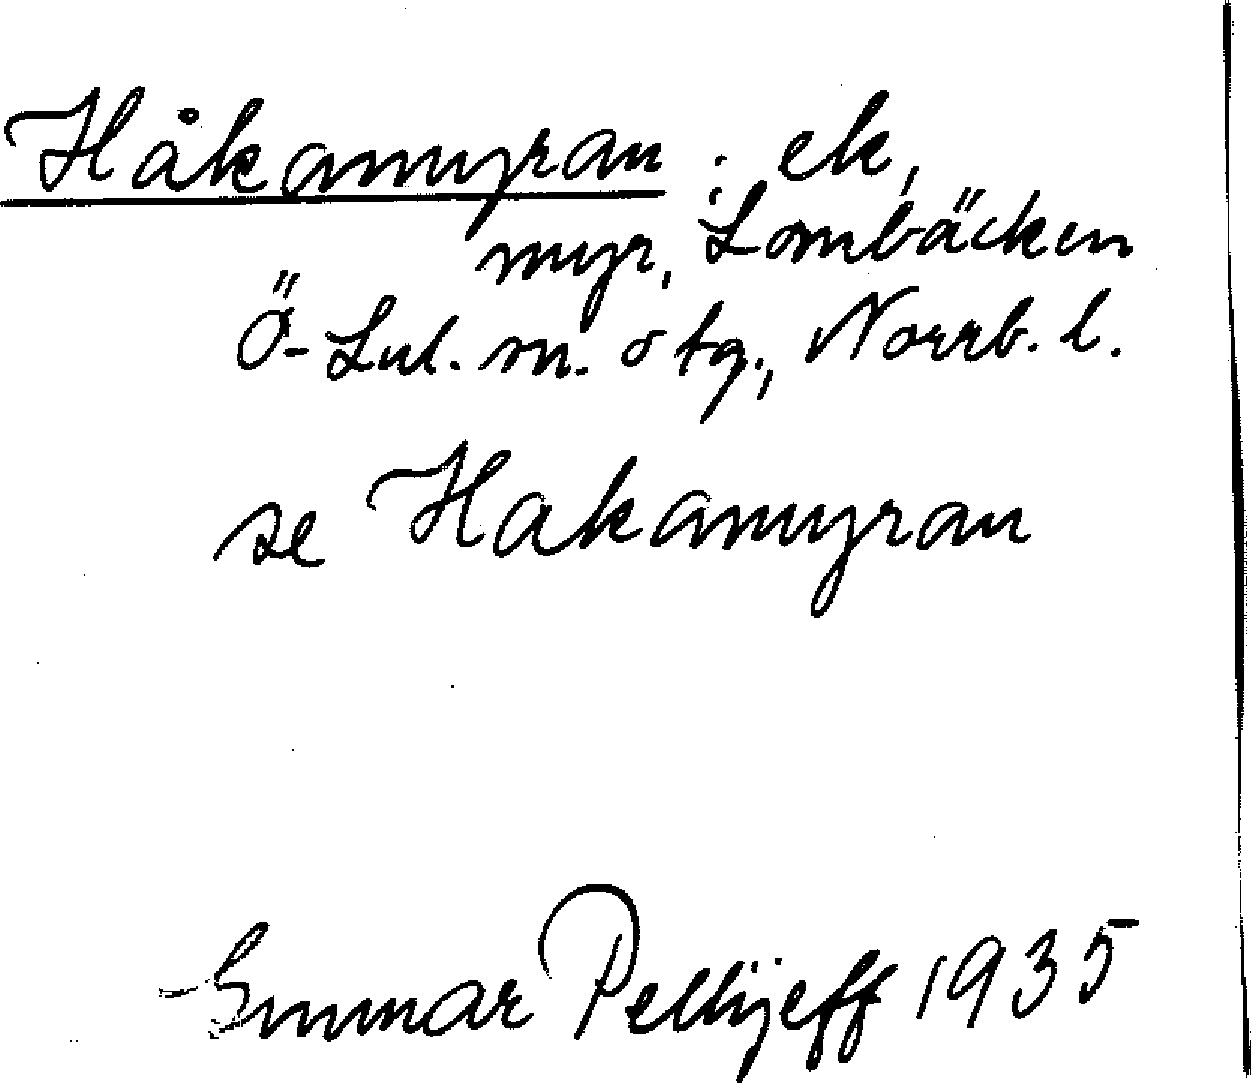 Håkamyran : ek,
myr, Lombäcken
Ö-Lul. sn. o tg., Norrb. l.
se Hakamyran
Gunnar Pellijeff 1935